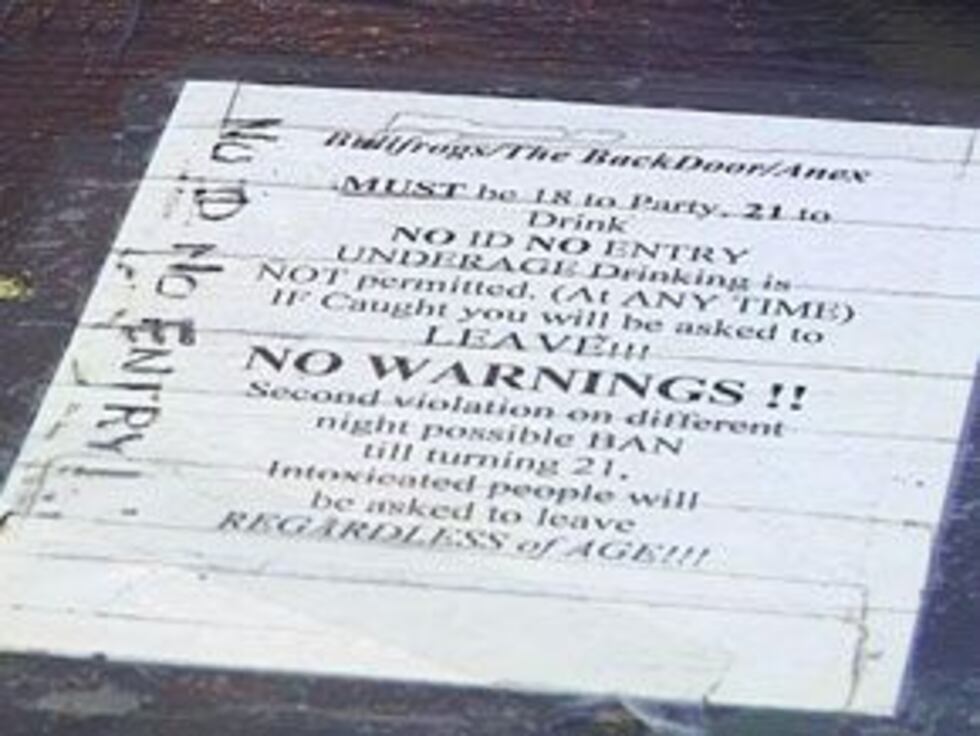 Bullfrogs/The BackDoor/Anex
MUST be 18 to Party, 21 to
Drink
NO ID NO ENTRY
UNDERAGE Drinking is
NOT permitted. (At ANY TIME)
IF Caught you will be asked to
LEAVE!!!
NO WARNINGS !!
Second violation on different
night possible BAN
till turning 21.
Intoxicated people will
be asked to leave
REGARDLESS of AGE!!!
No ID No ENTRY!!